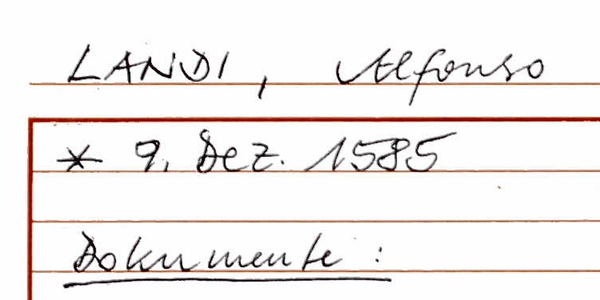 LANDI, Alfonso
* 9. Dez. 1585
Dokumente: